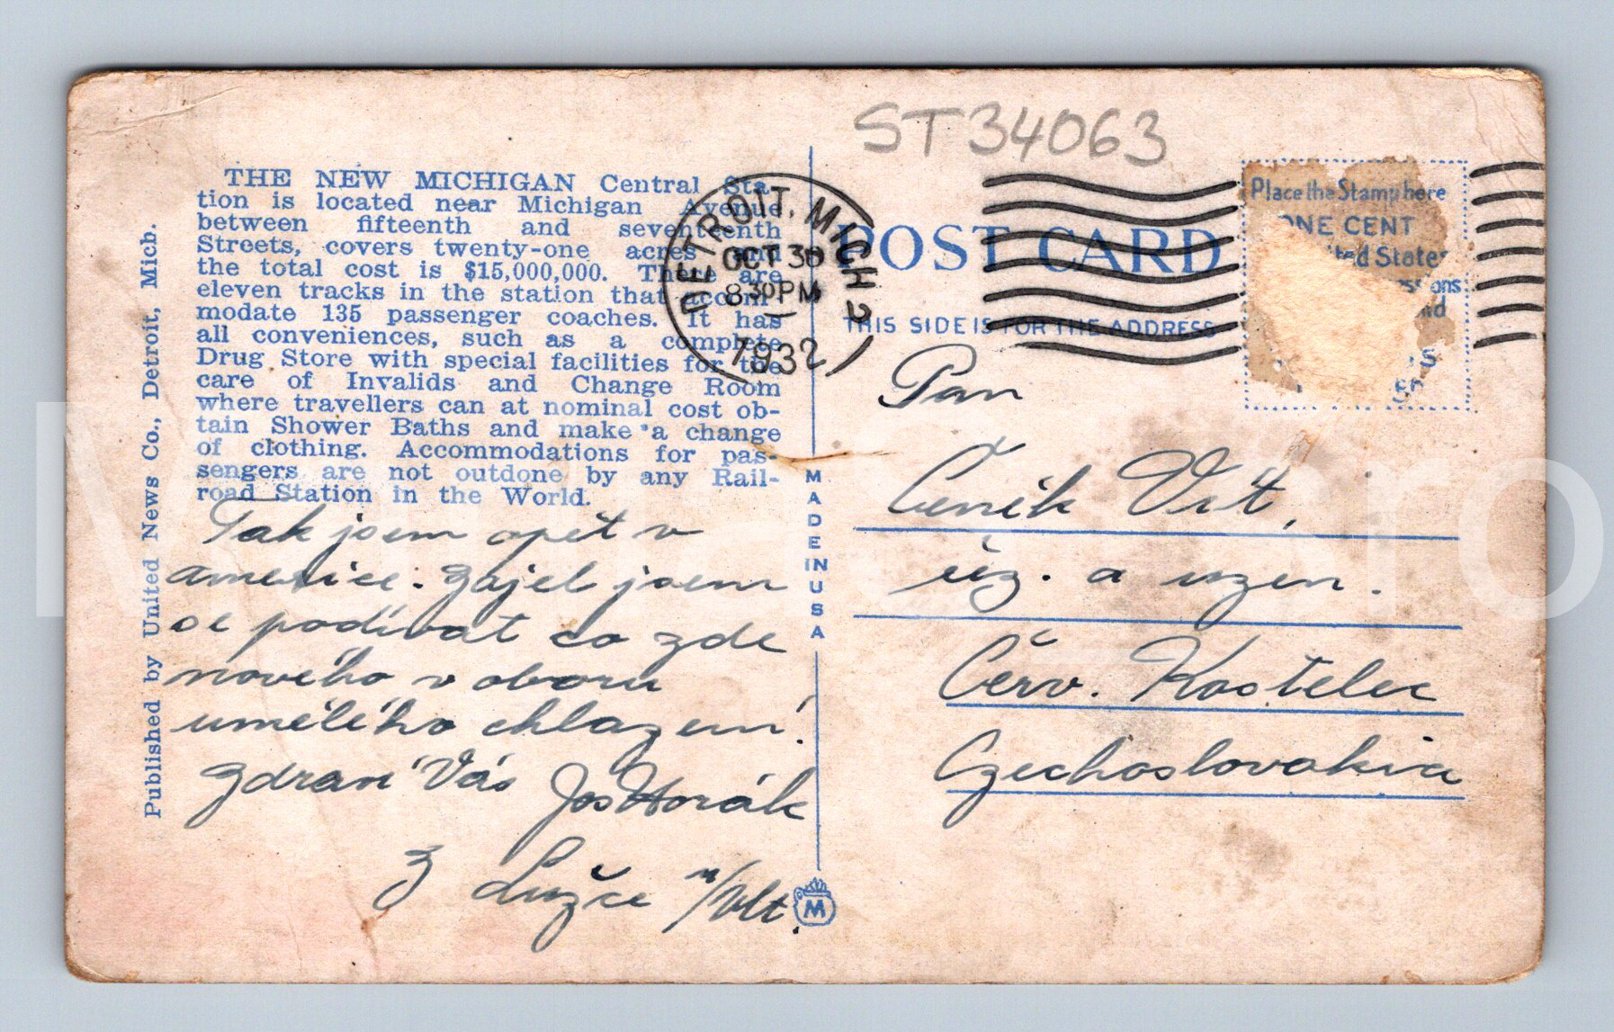 ST34063
THE NEW MICHIGAN Central Sta-
tion is located near Michigan Avenue
between fifteenth and seventeenth
Streets, covers twenty-one acres and
the total cost is $15,000,000. There are
eleven tracks in the station that accom-
modate 135 passenger coaches. It has
all conveniences, such as a complete
Drug Store with special facilities for the
care of Invalids and Change Room
where travellers can at nominal cost ob-
tain Shower Baths and make a change
of clothing. Accommodations for pas-
sengers are not outdone by any Rail-
road Station in the World.
Published by United News Co., Detroit, Mich.
Tak jsem opět v
americe. Zajel jsem
se podívat co zde
nového v oboru
umělého chlazení.
Zdraví Vás Jos Horák
z Lužce n/Vlt.
MADE IN USA
M
DETROIT, MICH 2
OCT 30
8 30 PM
1932
POST CARD
THIS SIDE IS FOR THE ADDRESS
Place the Stamp here
ONE CENT
ted States
Pan
Čeněk Vít,
uz. a uzen.
Červ. Kostelec
Czechoslovakia